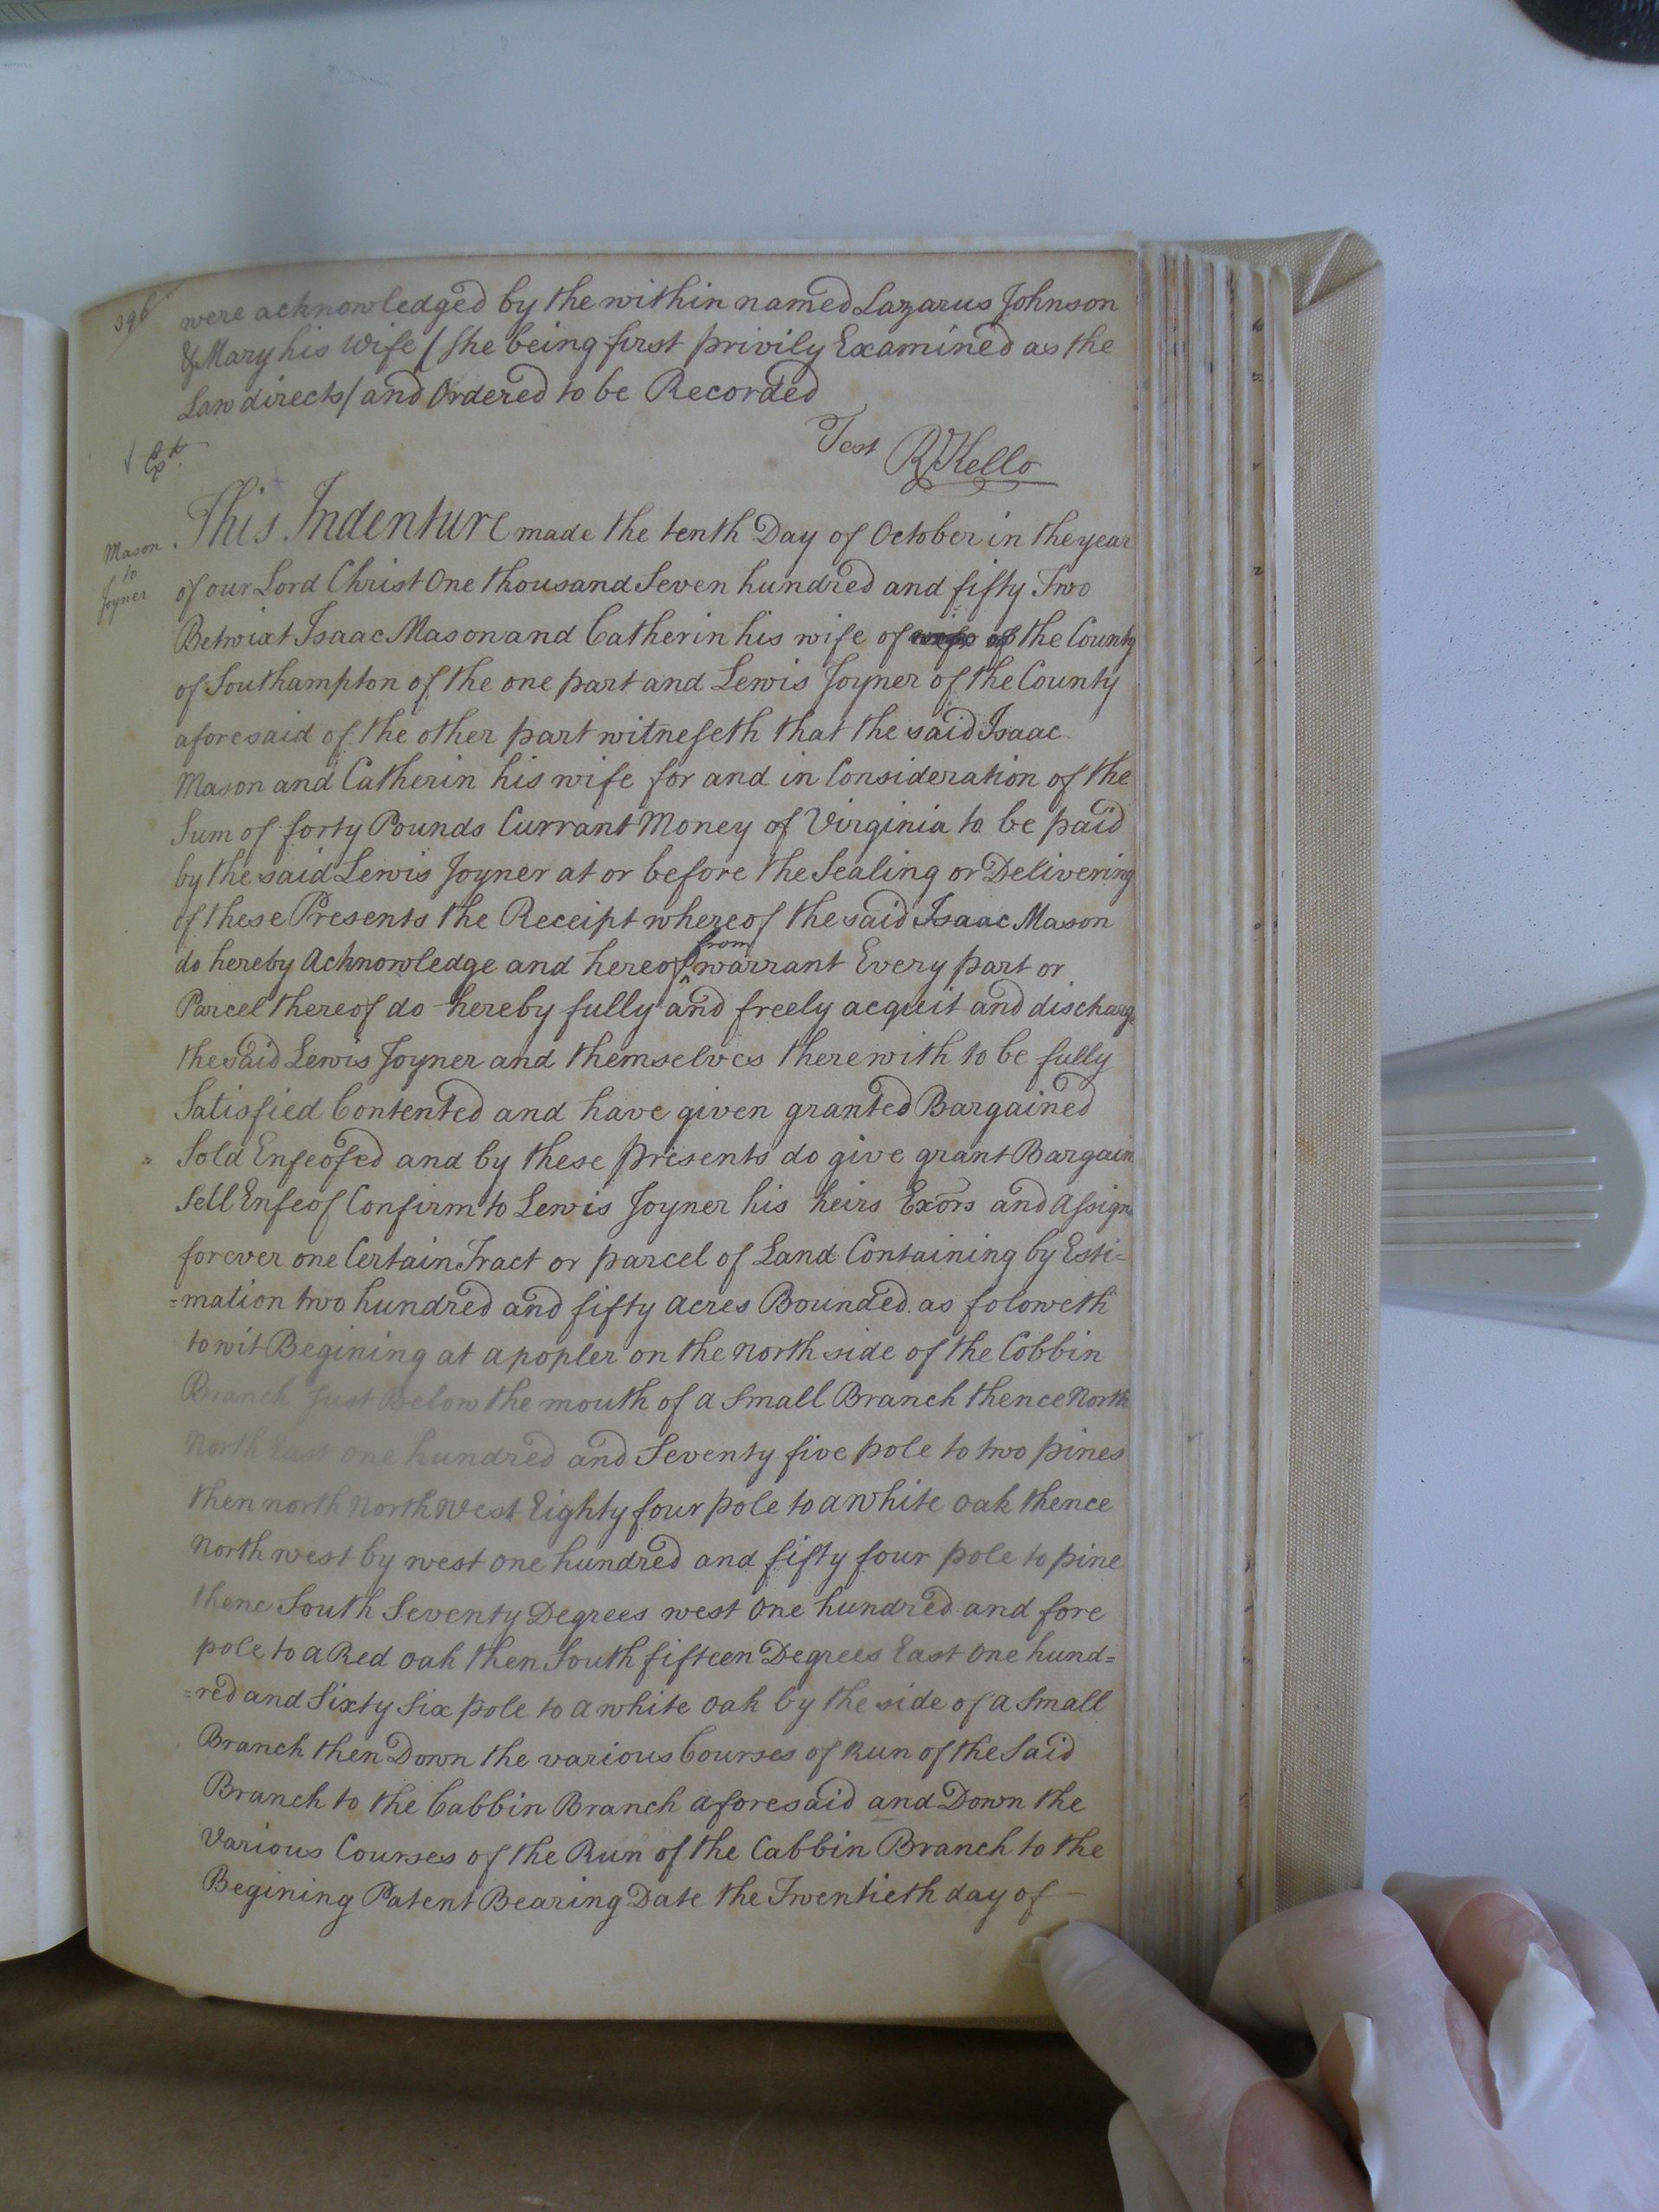 396
were acknowledged by the within named Lazarus Johnson
& Mary his Wife (She being first privily Examined as the
Law directs) and Ordered to be Recorded
Test RKello
Mason
to
Joyner
This Indenture made the tenth Day of October in the year
of our Lord Christ One thousand Seven hundred and fifty Two
Betwixt Isaac Mason and Catherin his wife of wife of the County
of Southampton of the one part and Lewis Joyner of the County
aforesaid of the other part witneseth that the said Isaac
Mason and Catherin his wife for and in Consideration of the
Sum of forty Pounds Currant Money of Virginia to be paid
by the said Lewis Joyner at or before the Sealing or Delivering
of these Presents the Receipt whereof the said Isaac Mason
from
do hereby Acknowledge and hereof warrant Every part or
Parcel thereof do hereby fully and freely acquit and discharge
the said Lewis Joyner and themselves therewith to be fully
Satisfied Contented and have given granted Bargained
Sold Enfeofed and by these presents do give grant Bargain
Sell Enfeof Confirm to Lewis Joyner his heirs Exors and Assigns
forever one Certain Tract or parcel of Land Containing by Esti=
=mation two hundred and fifty acres Bounded as foloweth
to wit Begining at a popler on the North side of the Cobbin
Branch Just Below the mouth of a Small Branch thence North
North East one hundred and Seventy five pole to two pines
then north North West Eighty four pole to a white Oak thence
North west by west one hundred and fifty four pole to pine
thenc South Seventy Degrees west One hundred and fore
pole to a Red Oak then South fifteen Degrees East One hund=
=red and Sixty Six pole to a white Oak by the side of a Small
Branch then Down the various Courses of Run of the Said
Branch to the Cabbin Branch aforesaid and Down the
Various Courses of the Run of the Cabbin Branch to the
Begining Patent Bearing Date the Twentieth day of